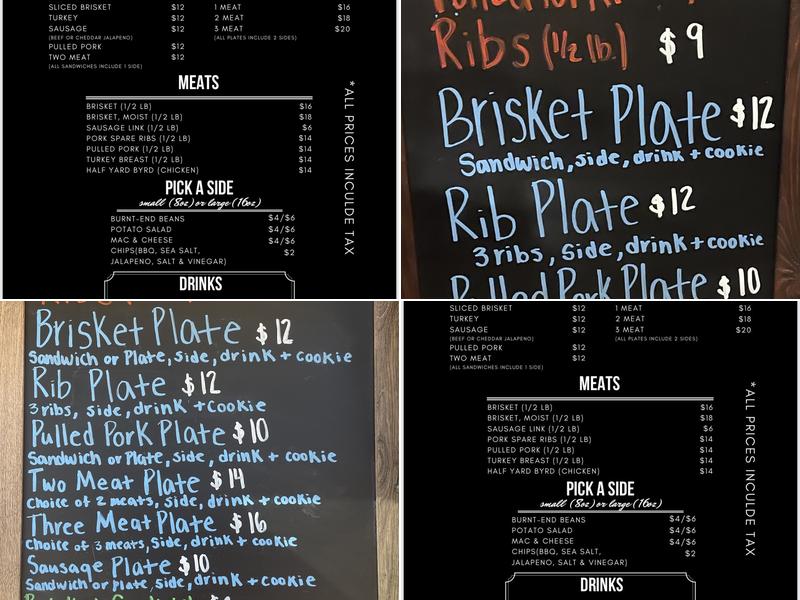 SLICED BRISKET $12
TURKEY $12
SAUSAGE $12
(BEEF OR CHEDDAR JALAPENO)
PULLED PORK $12
TWO MEAT $12
(ALL SANDWICHES INCLUDE 1 SIDE)
1 MEAT $16
2 MEAT $18
3 MEAT $20
(ALL PLATES INCLUDE 2 SIDES)
MEATS
BRISKET (1/2 LB) $16
BRISKET, MOIST (1/2 LB) $18
SAUSAGE LINK (1/2 LB) $6
PORK SPARE RIBS (1/2 LB) $14
PULLED PORK (1/2 LB) $14
TURKEY BREAST (1/2 LB) $14
HALF YARD BYRD (CHICKEN) $14
PICK A SIDE
small (8oz) or large (16oz)
BURNT-END BEANS $4/$6
POTATO SALAD $4/$6
MAC & CHEESE $4/$6
CHIPS(BBQ, SEA SALT, $2
JALAPENO, SALT & VINEGAR)
DRINKS
*ALL PRICES INCULDE TAX
Ribs (1/2 lb.) $9
Brisket Plate $12
Sandwich, side, drink + cookie
Rib Plate $12
3 ribs, side, drink + cookie
Pulled Pork Plate $10
Brisket Plate $12
Sandwich or Plate, side, drink + cookie
Rib Plate $12
3 ribs, side, drink + cookie
Pulled Pork Plate $10
Sandwich or Plate, side, drink + cookie
Two Meat Plate $14
Choice of 2 meats, side, drink + cookie
Three Meat Plate $16
Choice of 3 meats, side, drink + cookie
Sausage Plate $10
Sandwich or plate, side, drink + cookie
SLICED BRISKET $12
TURKEY $12
SAUSAGE $12
(BEEF OR CHEDDAR JALAPENO)
PULLED PORK $12
TWO MEAT $12
(ALL SANDWICHES INCLUDE 1 SIDE)
1 MEAT $16
2 MEAT $18
3 MEAT $20
(ALL PLATES INCLUDE 2 SIDES)
MEATS
BRISKET (1/2 LB) $16
BRISKET, MOIST (1/2 LB) $18
SAUSAGE LINK (1/2 LB) $6
PORK SPARE RIBS (1/2 LB) $14
PULLED PORK (1/2 LB) $14
TURKEY BREAST (1/2 LB) $14
HALF YARD BYRD (CHICKEN) $14
PICK A SIDE
small (8oz) or large (16oz)
BURNT-END BEANS $4/$6
POTATO SALAD $4/$6
MAC & CHEESE $4/$6
CHIPS(BBQ, SEA SALT, $2
JALAPENO, SALT & VINEGAR)
DRINKS
*ALL PRICES INCULDE TAX